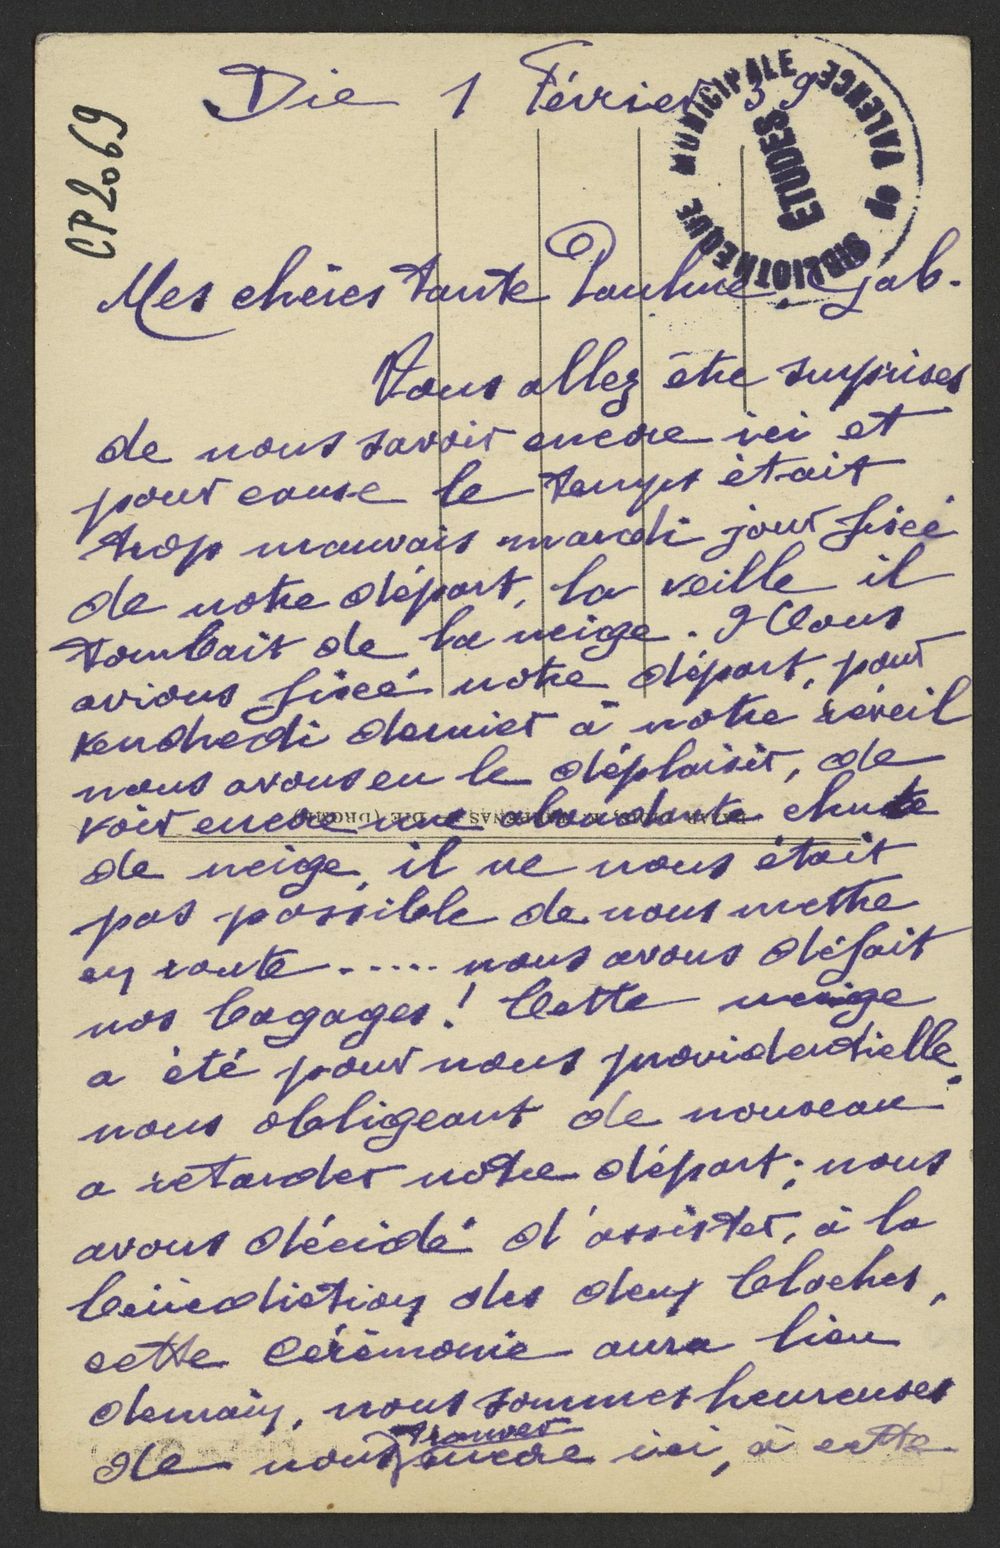 Die 1 Février 39
CP2069
BIBLIOTHEQUE MUNICIPALE de VALENCE
ETUDES
Mes chères tante Pauline, Gab.
Vous allez être surprises
de nous savoir encore ici et
pour cause le temps était
trop mauvais mardi jour fixé
de notre départ, la veille il
tombait de la neige. Nous
avions fixé notre départ, pour
vendredi dernier à notre réveil
nous avons eu le déplaisir, de
voir encore une abondante chute
DIE (DROME)
de neige, il ne nous était
pas possible de nous mettre
en route ..... nous avons défait
nos bagages! Cette neige
a été pour nous providentielle,
nous obligeant de nouveau
a retarder notre départ; nous
avons décidé d'assister, à la
bénédiction des deux Cloches,
cette Cérémonie aura lieu
demain, nous sommes heureuses
de nous trouver encore ici, à cette